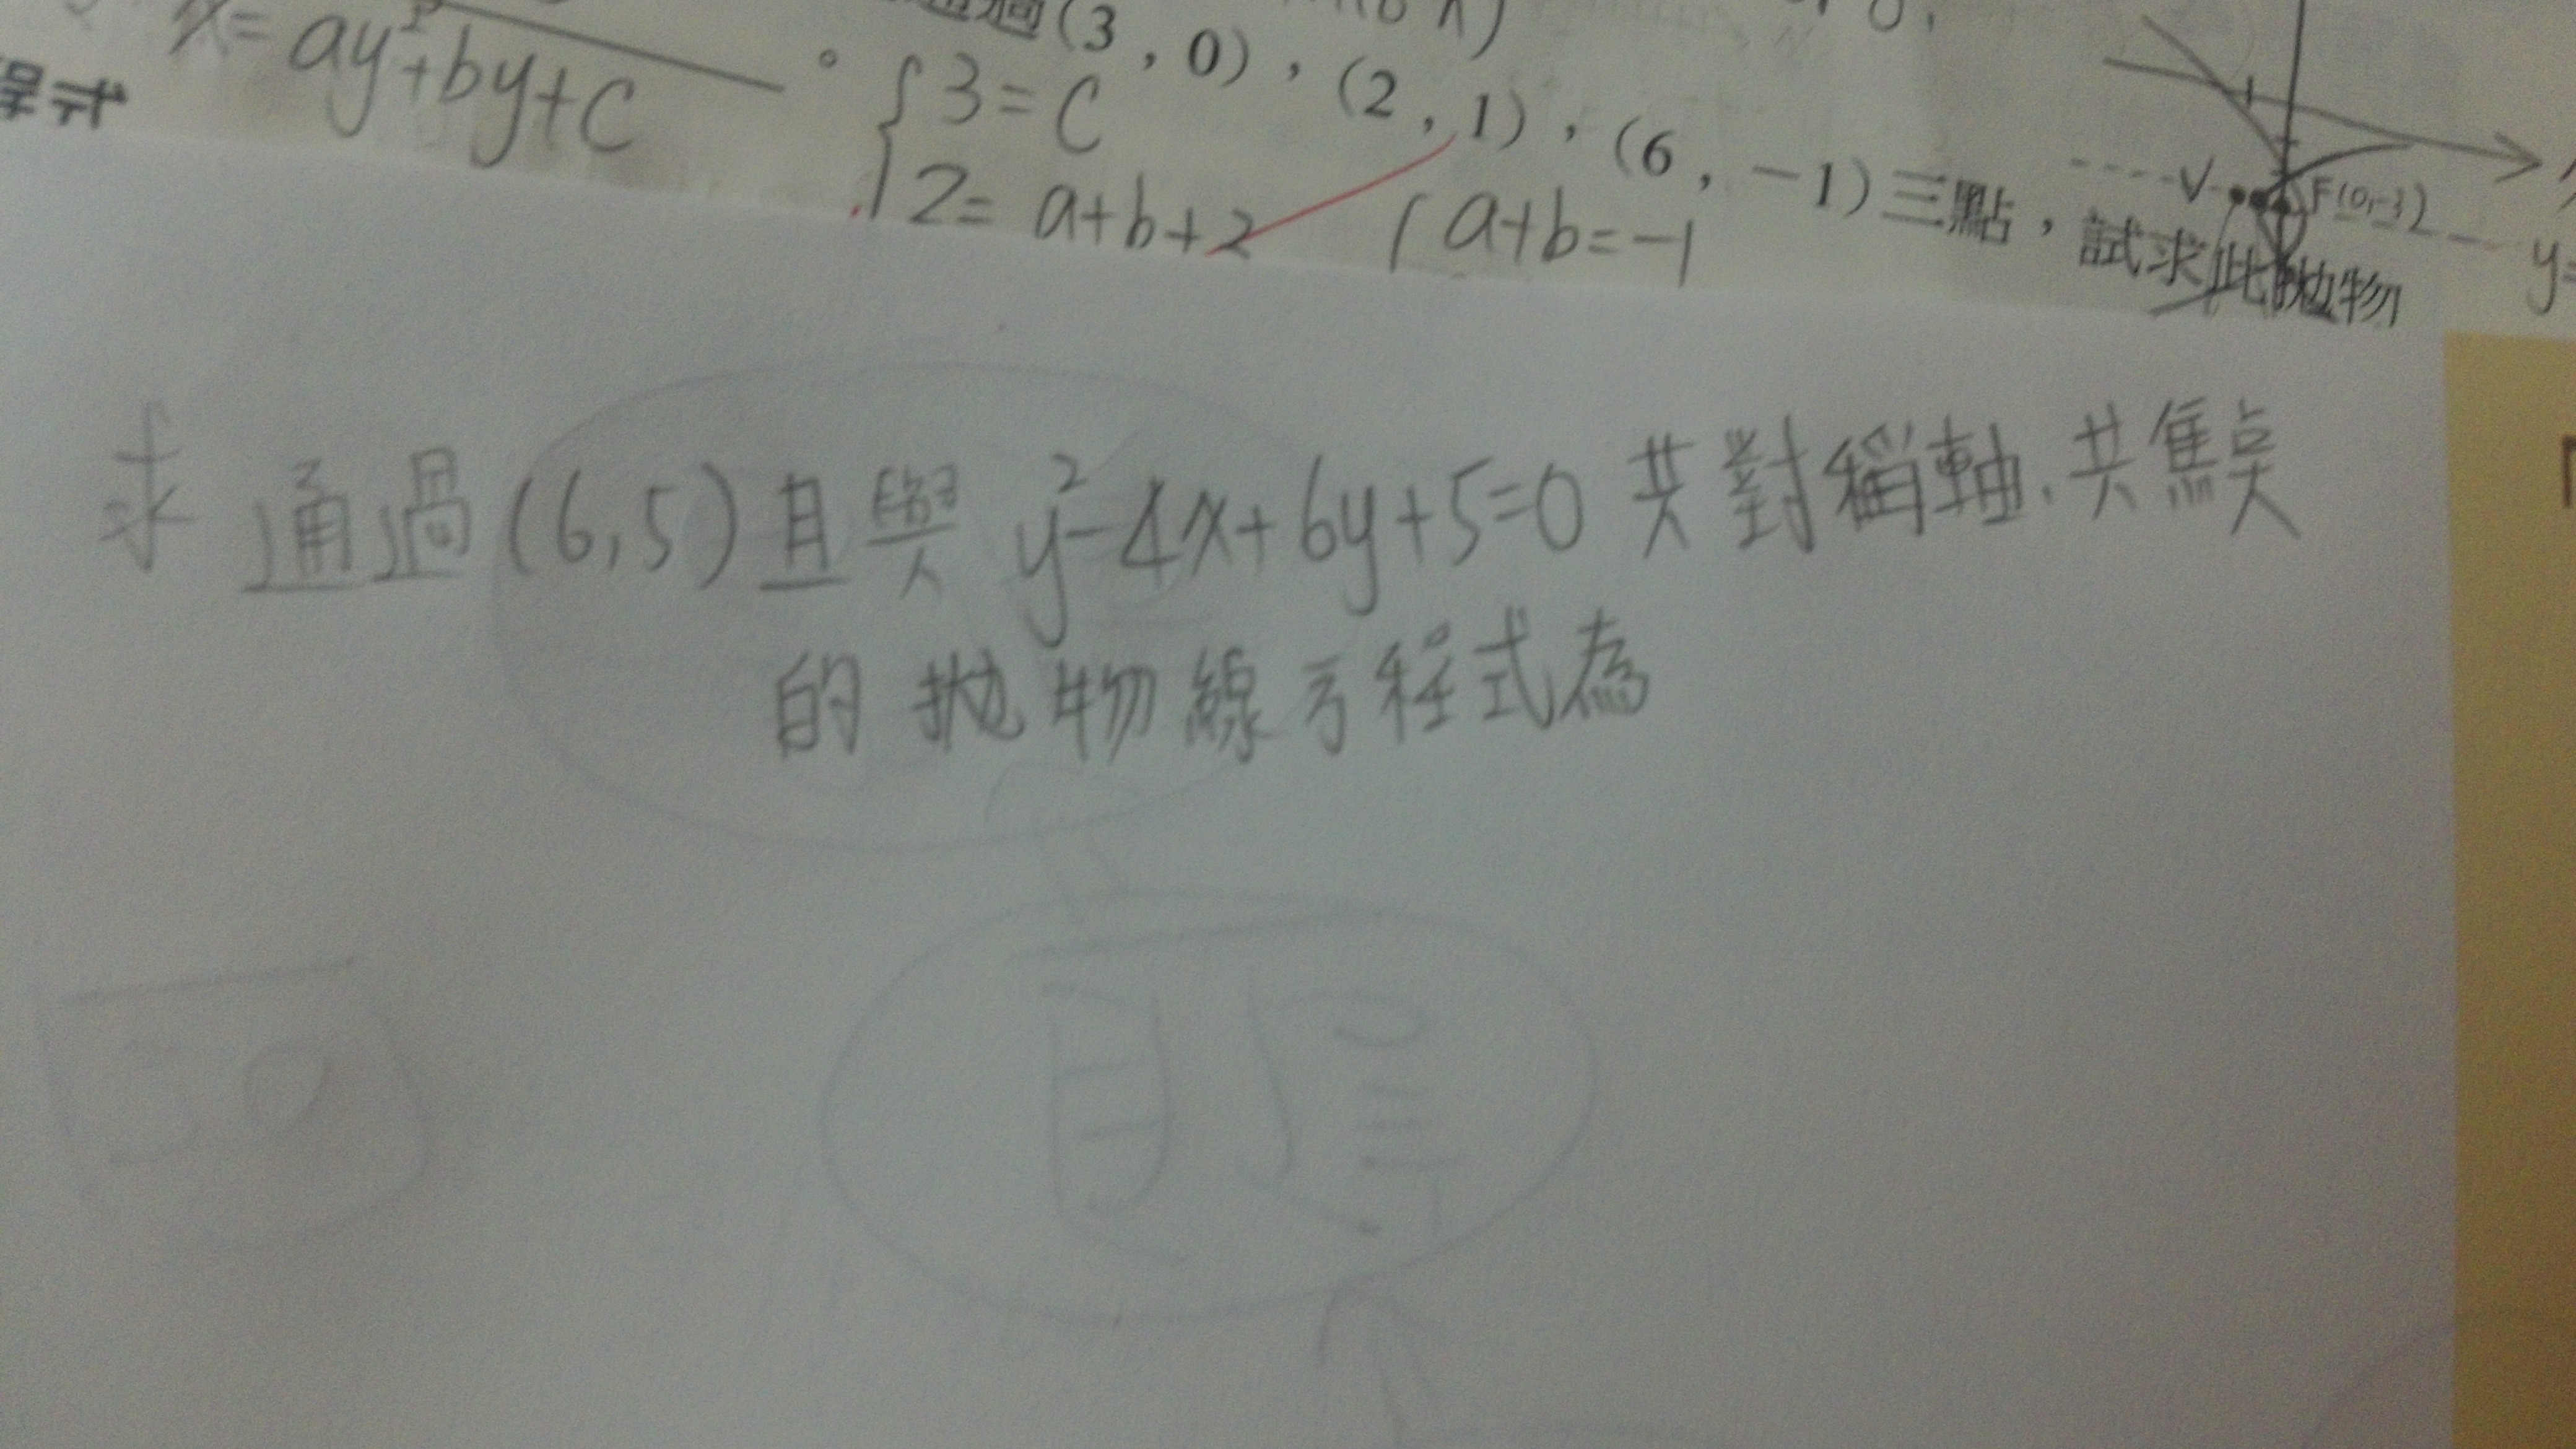 x=ay²+by+c
程式
(3,0),(2,1),(6,-1)三點,試求此拋物
3=c
2=a+b+2
a+b=-1
V
F(0,-3)
y=
求通過(6,5)且與 y²-4x+6y+5=0 共對稱軸.共焦点
的拋物線方程式為